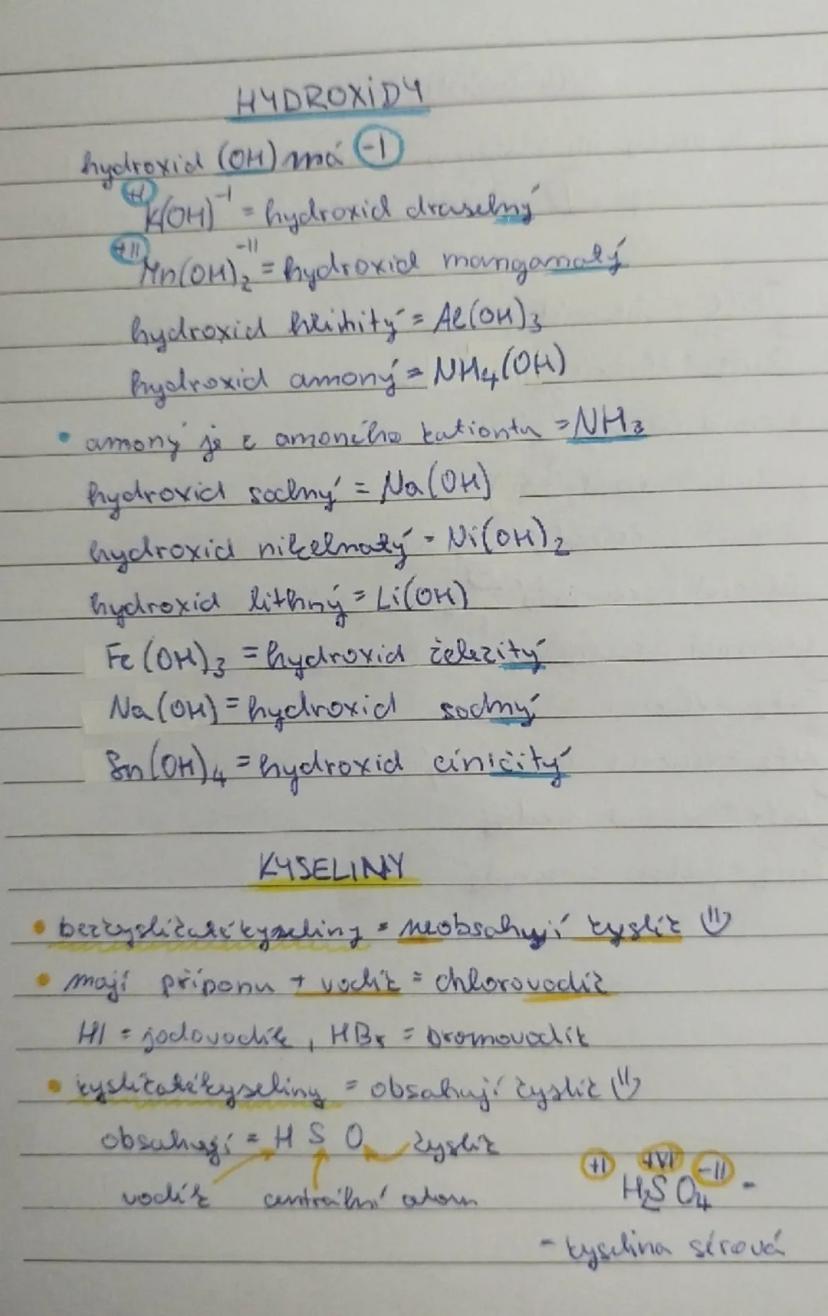 HYDROXIDY
hydroxid (OH) má -I
+I
K(OH)⁻¹ = hydroxid draselný
+II -II
Mn(OH)₂ = hydroxid manganatý
hydroxid hlinitý = Al(OH)₃
hydroxid amoný = NH₄(OH)
• amoný je z amoného kationtu = NH₃
hydroxid sodný = Na(OH)
hydroxid nikelnatý = Ni(OH)₂
hydroxid lithný = Li(OH)
Fe(OH)₃ = hydroxid železitý
Na(OH) = hydroxid sodný
Sn(OH)₄ = hydroxid cíničitý
KYSELINY
• bezkyslíkaté kyseliny = neobsahují kyslík
• mají příponu + vodík = chlorovodík
HI = jodovodík, HBr = bromovodík
• kyslíkaté kyseliny = obsahují kyslík
obsahují = H S O kyslík
vodík centrální atom
+I +VI -II
H₂SO₄ -
- kyselina sírová